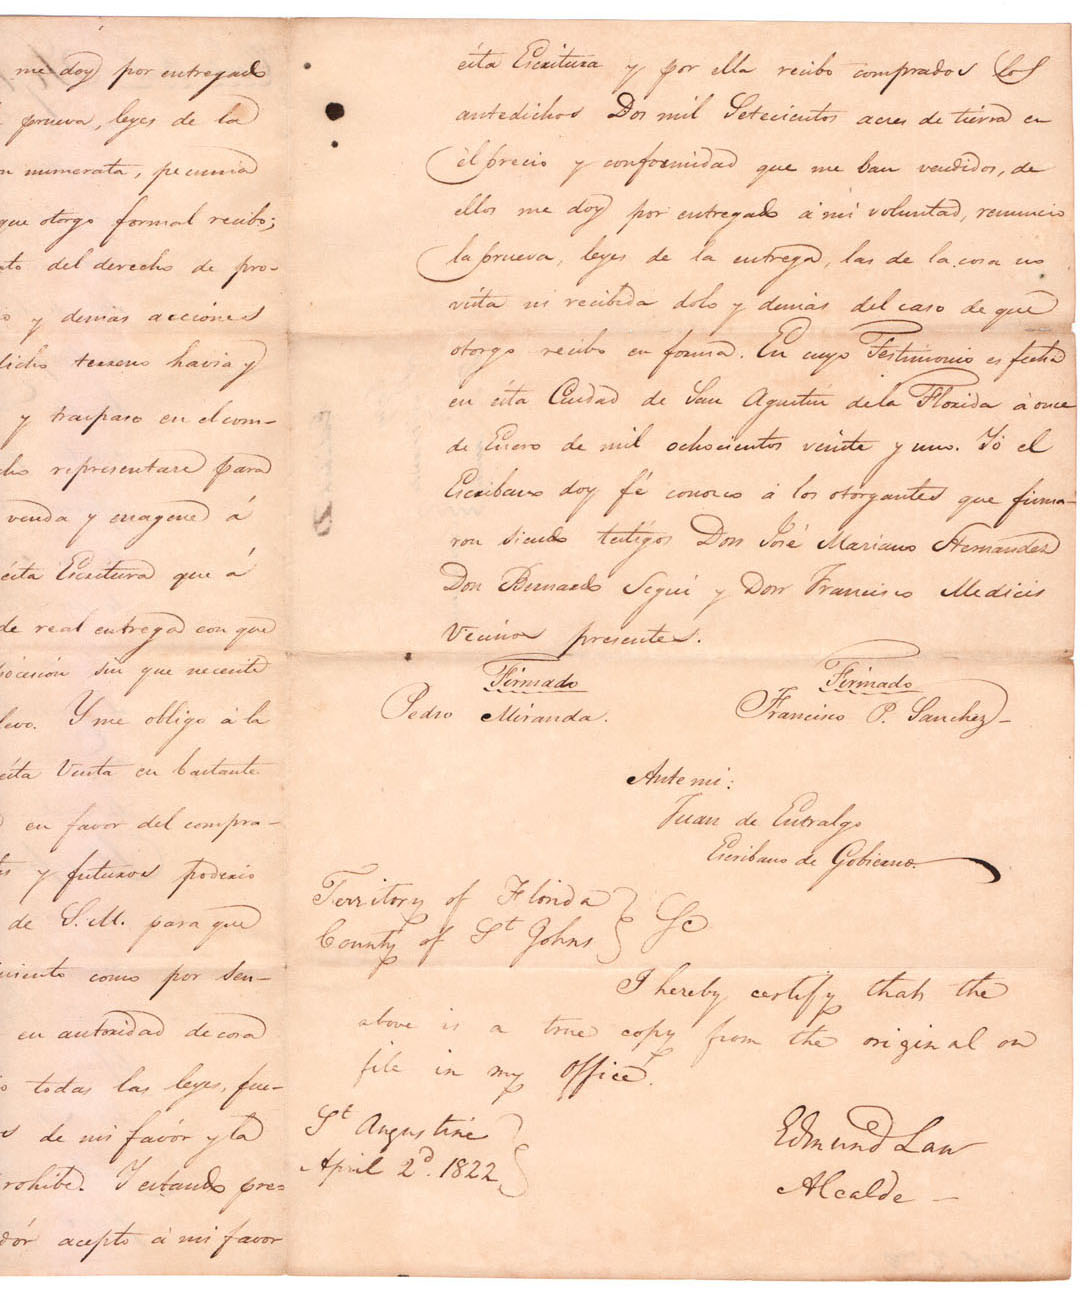 me doy por entregado
prueva, leyes de la
numerata, pecunia
que otorgo formal recibo;
del derecho de pro-
y demas acciones
dicho terreno havia y
y traspaso en el com-
representare para
venda y enagene á
ésta Escritura que á
de real entrega con que
posesión sin que necesite
Y me obligo á la
ésta Venta en bastante
en favor del compra-
y futuros poderio
de S.M. para que
como por sen-
en autoridad de cosa
todas las leyes, fue-
de mi favór y la
prohibe. Y estando pre-
acepto á mi favor
ésta Escritura y por ella recibo comprados los
antedichos Dos mil Setecientos acres de tierra en
él precio y conformidad que me han vendidos, de
ellos me doy por entregado á mi voluntad, renuncio
la prueva, leyes de la entrega, las de la cosa no
vista ni recibida dolo y demás del caso de que
otorgo recibo en forma. En cuyo Testimonio es fecha
en ésta Ciudad de San Agustin de la Florida á once
de Enero de mil ochocientos veinte y uno. Yó el
Escribano doy fé conosco á los otorgantes que firma-
ron siendo testigos Don José Mariano Hernandez
Don Bernardo Segui y Don Francisco Medicis
Vecinos presentes.
Firmado
Pedro Miranda.
Firmado
Francisco P. Sanchez
Ante mi:
Juan de Entralgo
Escribano de Gobierno.
Territory of Florida
County of St Johns } Sc
I hereby certify that the
above is a true copy from the original on
file in my Office.
St Augustine
April 2d. 1822
Edmund Law
Alcalde